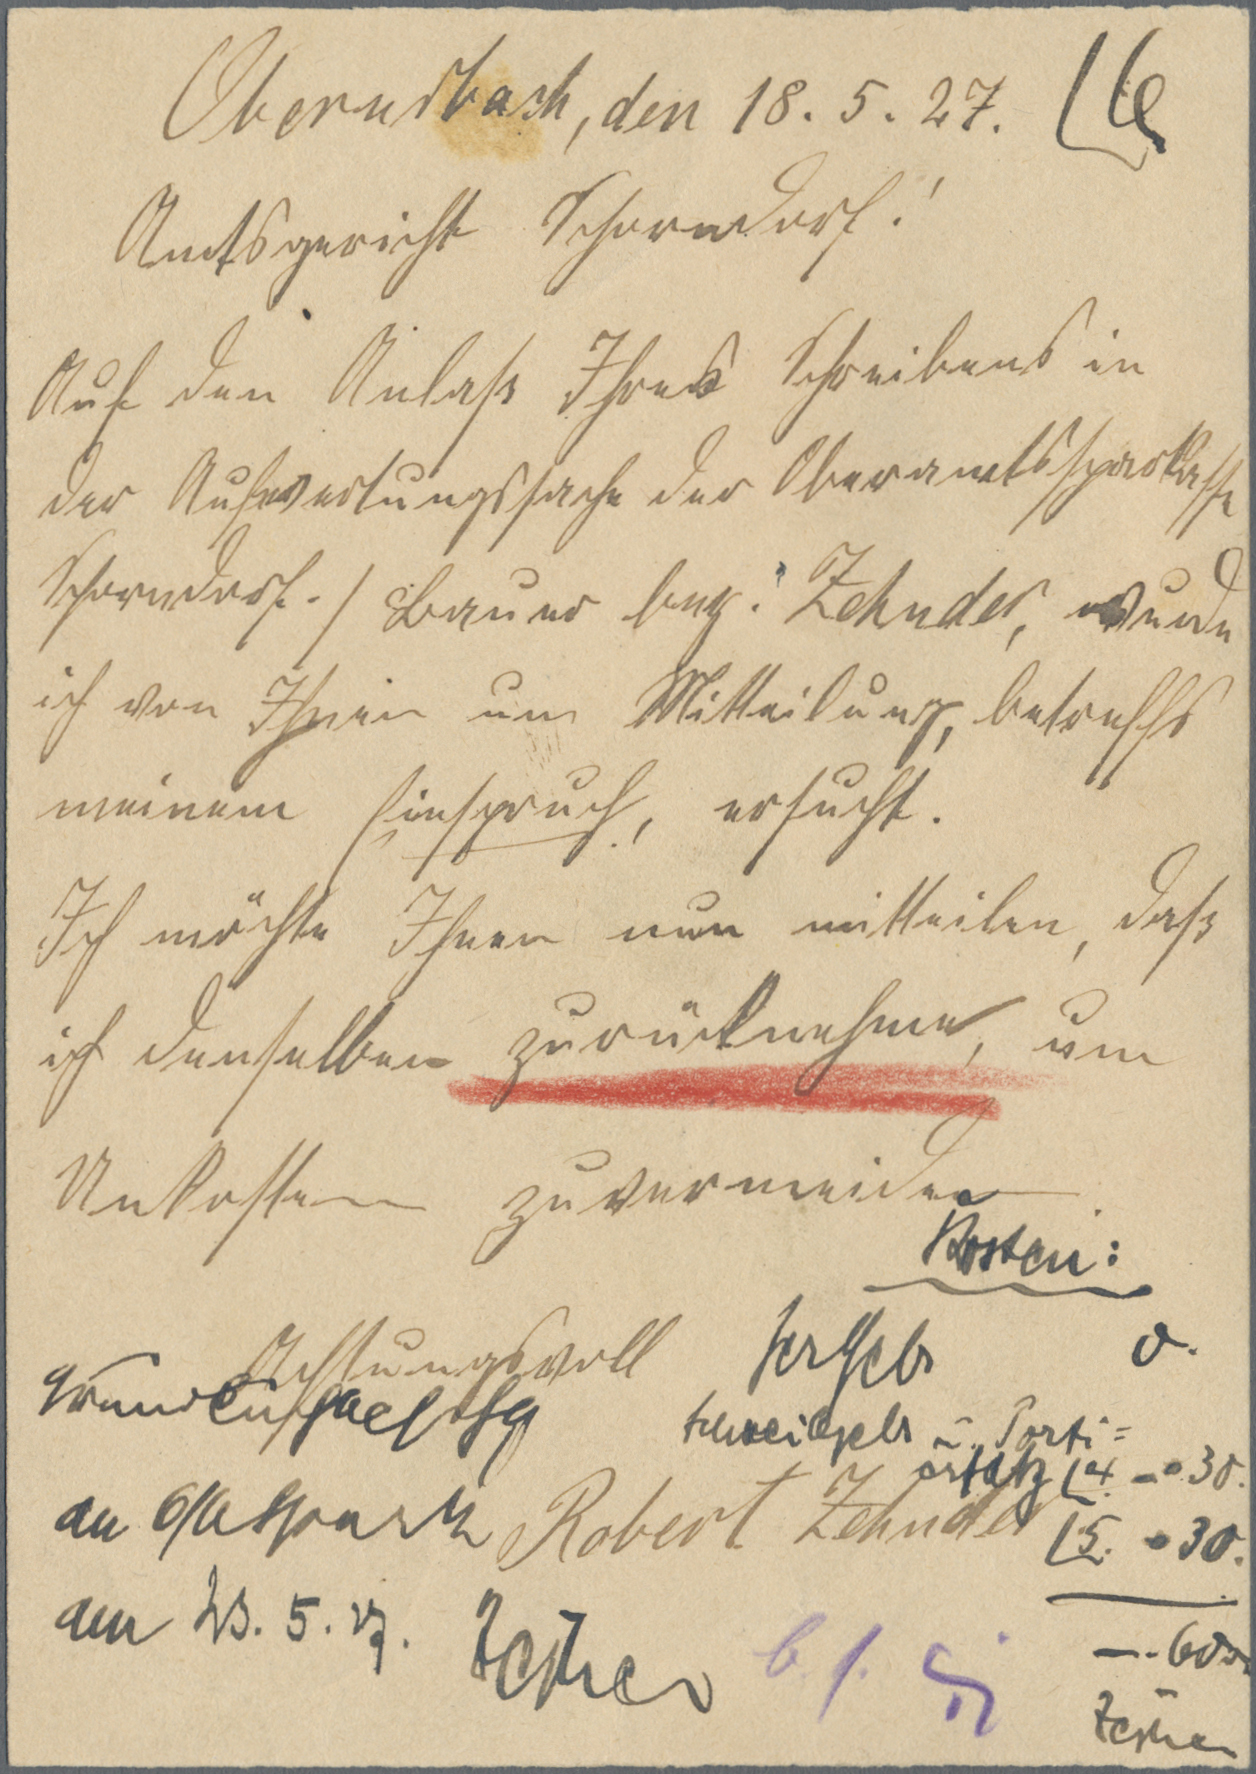 Oberurbach, den 18. 5. 27.
Amtsgericht Schorndorf!
Auf den Anlaß Ihres Schreibens in
der Aufwertungssache der Oberamtssparkasse
Schorndorf ./ Bauer bez: Zehnder, wurde
ich von Ihnen um Mitteilung, betreffs
meinem Einspruch, ersucht.
Ich möchte Ihnen nun mitteilen, daß
ich denselben zurücknehme, um
Unkosten zuvermeiden
Kosten:
Achtungsvoll
0.
Schreibgeb u. Porti=
ersatz 4 -.30.
an Robert Zehnder 5. .30.
am 23. 5. 27.
-.60